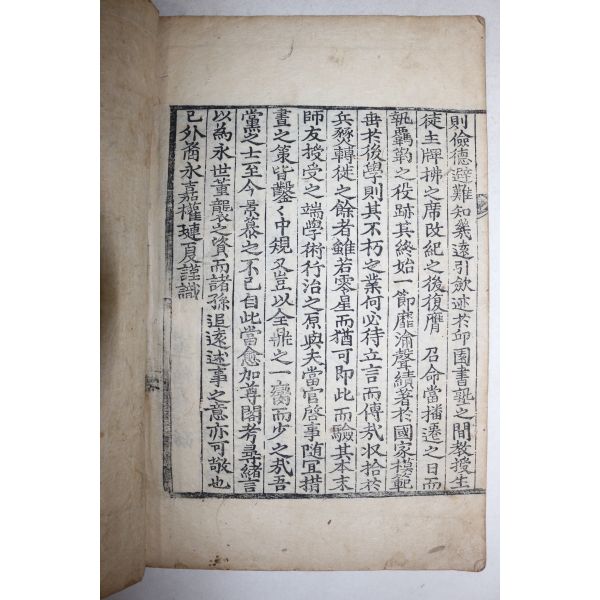 則儉德避難知幾遠引斂迹於邱園書塾之間教授生
徒主牌拂之席改紀之後復膺 召命當播遷之日而
執羈靮之役跡其終始一節靡渝聲績著於國家模範
垂於後學則其不朽之業何必待立言而傳哉收拾於
兵燹轉徙之餘者雖若零星而猶可即此而驗其本末
師友授受之端學術行治之原與夫當官啓事隨宜措
畫之策皆鑿〻中規又豈以全鼎之一臠而少之哉吾
黨之士至今景慕之不已自此當愈加尊閣考尋緖言
以為永世薰襲之資而諸孫追遠述事之意亦可敬也
已外裔永嘉權璉夏謹識